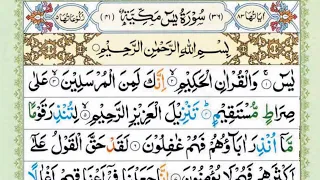 اٰیاتها ٨٣ (٣٦) سُوْرَةُ یٰسٓ مَكِّیَّةٌ (٤١) رُكُوْعَاتُهَا ٥
بِسْمِ اللّٰهِ الرَّحْمٰنِ الرَّحِیْمِ
یٰسٓ ۚ وَالْقُرْاٰنِ الْحَكِیْمِ ۙ اِنَّكَ لَمِنَ الْمُرْسَلِیْنَ ۙ عَلٰی
صِرَاطٍ مُّسْتَقِیْمٍ ؕ تَنْزِیْلَ الْعَزِیْزِ الرَّحِیْمِ ۙ لِتُنْذِرَ قَوْمًا
مَّاۤ اُنْذِرَ اٰبَآؤُهُمْ فَهُمْ غٰفِلُوْنَ لَقَدْ حَقَّ الْقَوْلُ عَلٰۤی
اَكْثَرِهِمْ فَهُمْ لَا یُؤْمِنُوْنَ اِنَّا جَعَلْنَا فِیْۤ اَعْنَاقِهِمْ اَغْلٰلًا